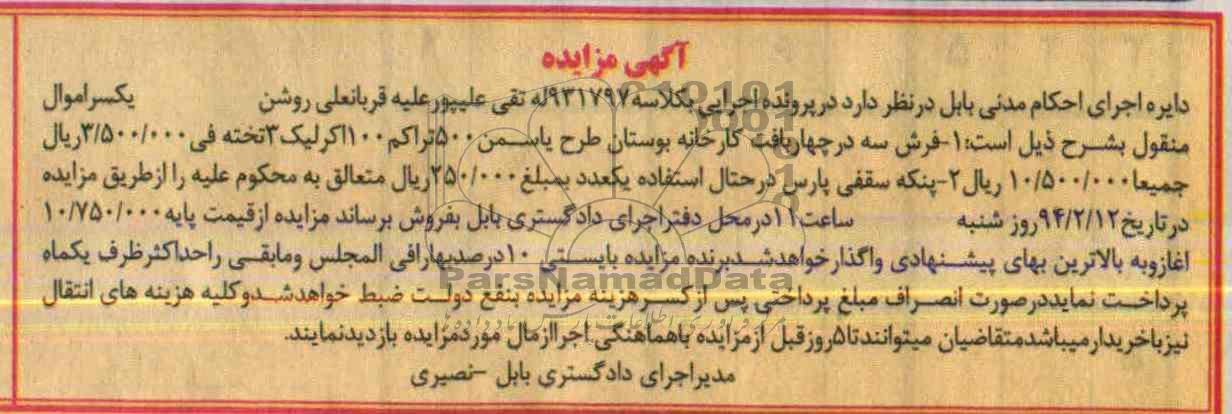 آگهی مزایده
دایره اجرای احکام مدنی بابل درنظر دارد درپرونده اجرایی بکلاسه۹۳۱۷۹۷له تقی علیپورعلیه قربانعلی روشن یکسراموال
منقول بشرح ذیل است:۱-فرش سه درچهاربافت کارخانه بوستان طرح یاسمن ۵۰۰تراکم ۱۰۰اکرلیک۳تخته فی۳/۵۰۰/۰۰۰ریال
جمیعا۱۰/۵۰۰/۰۰۰ ریال۲-پنکه سقفی پارس درحتال استفاده یکعدد بمبلغ ۲۵۰/۰۰۰ریال متعالق به محکوم علیه را ازطریق مزایده
درتاریخ۹۴/۲/۱۲روز شنبه ساعت۱۱درمحل دفتراجرای دادگستری بابل بفروش برساند مزایده ازقیمت پایه۱۰/۷۵۰/۰۰۰
اغازوبه بالاترین بهای پیشنهادی واگذارخواهدشدبرنده مزایده بایستی ۱۰درصدبهارافی المجلس ومابقی راحداکثرظرف یکماه
پرداخت نمایددرصورت انصراف مبلغ پرداختی پس ازکسرهزینه مزایده بنفع دولت ضبط خواهدشدوکلیه هزینه های انتقال
نیزباخریدارمیباشدمتقاضیان میتوانندتا۵روزقبل ازمزایده باهماهنگی اجراازمال موردمزایده بازدیدنمایند.
مدیراجرای دادگستری بابل -نصیری
ParsNamadData